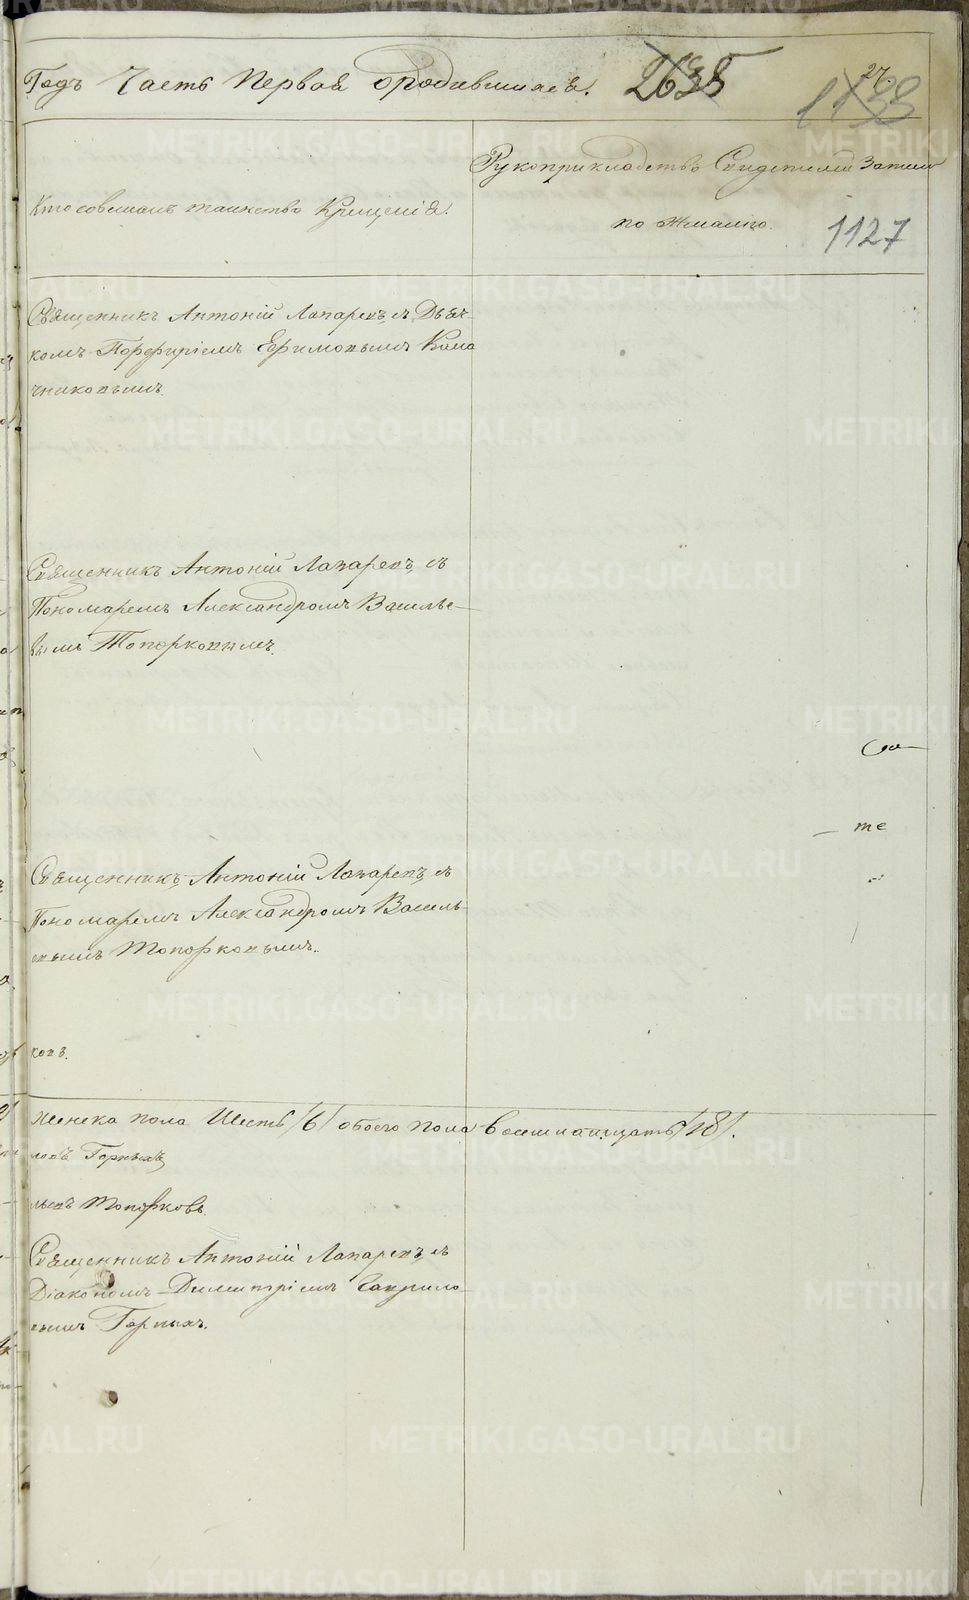 Годъ Часть Первая ородившихся. 2635 27.
1133
Кто совершалъ таинство Крещенія.
Рукоприкладство Свидетелей Записи
по желанію.
1127
Священникъ Антоній Лапаревъ, съ Дьяч-
комъ Порфиріемъ Ефимовымъ Кала
чниковымъ.
Священникъ Антоній Лапаревъ, съ
Пономаремъ Александромъ Василье-
вымъ Топорковымъ.
те
Священникъ Антоній Лапаревъ, съ
Пономаремъ Александромъ Василь-
евымъ Топорковымъ.
ковъ.
Женска пола Шесть /6/ обоего пола восимнатцать /18/.
ловъ Горныхъ
льевъ Топорковъ
Священникъ Антоній Лапаревъ, съ
Діакономъ Димитріемъ Гаврило-
вымъ Горныхъ.
METRIKI.GASO-URAL.RU